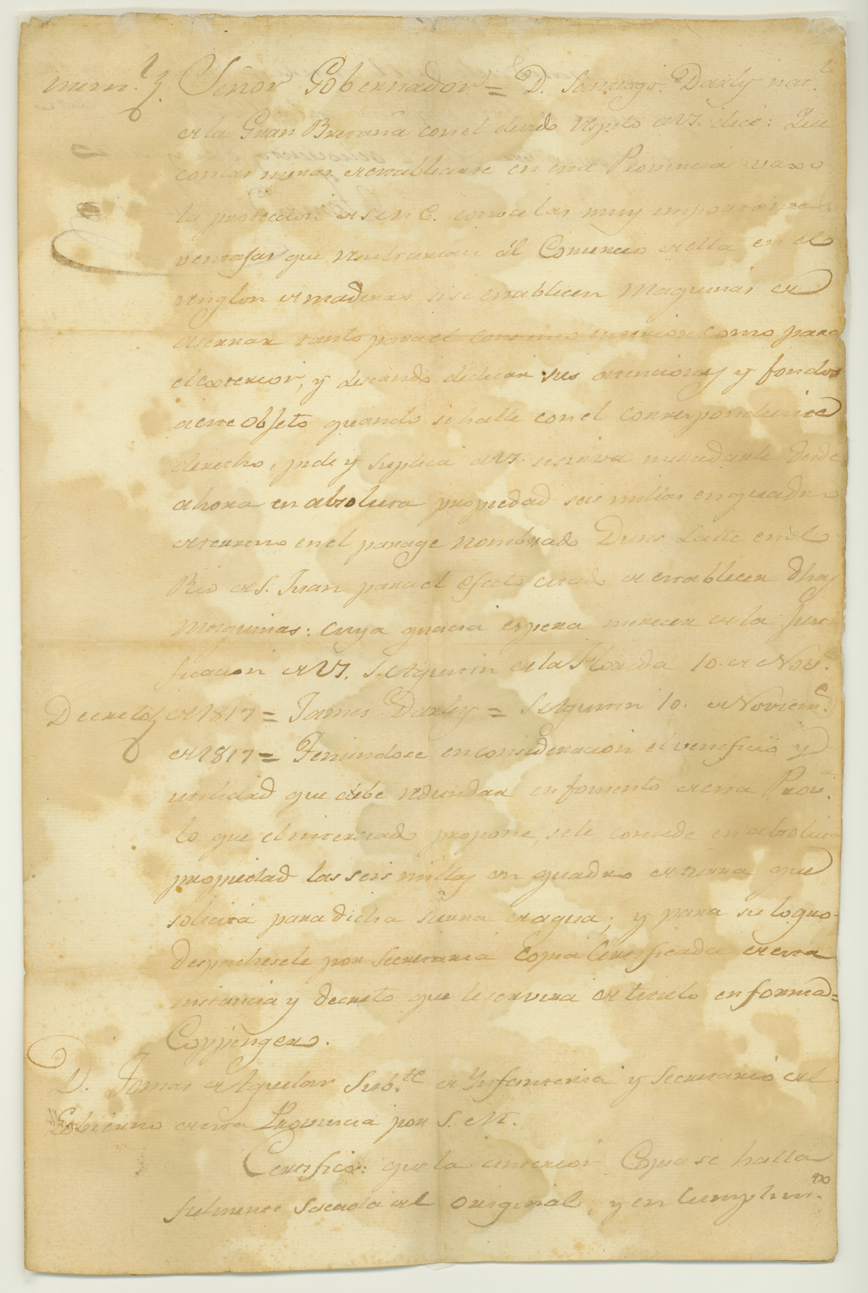 Señor Gobernador = D. Santiago Darly nat.l
de la Gran Bretaña con el devido respeto a VS. dice: Que
con las miras de establecerse en esta Provincia vaxo
la proteccion de S.M.C. conoce las muy importantes
ventajas que resultarian al Comercio de ella en el
renglon de maderas si se establecen Maquinas de
aserrar tanto para el consumo interior como para
el exterior, y deseando dedicar sus atenciones y fondos
a este objeto quando se halle con el correspondiente
derecho, pide y suplica a VS. se sirva mandarle desde
ahora en absoluta propiedad seis millas en quadro
de terreno en el parage nombrado Duns Lake en el
Rio de S. Juan para el efecto citado de establecer dhas
Maquinas: cuya gracia espera merecer de la Justi
ficacion de VS. S. Agustin de la Florida 10. de Nov.e
Decreto de 1817 = James Darly = S. Agustin 10. de Noviem.e
de 1817 = Teniendose en consideracion el veneficio y
utilidad que debe redundar en fomento de esta Prov.a
lo que el interesado propone, se le concede en absoluta
propiedad las seis millas en quadro de tierra que
solicita para dicha sierra de agua; y para su logro
despachesele por Secretaria Copia Certificada de esta
instancia y decreto que le servira de titulo en forma =
Coppinger.
D. Tomas de Aguilar Sub.te de Infanteria y Secretario del
Gobierno de esta Provincia por S. M.
Certifico: que la anterior Copia se halla
fielmente sacada del original, y en Cumplim.to